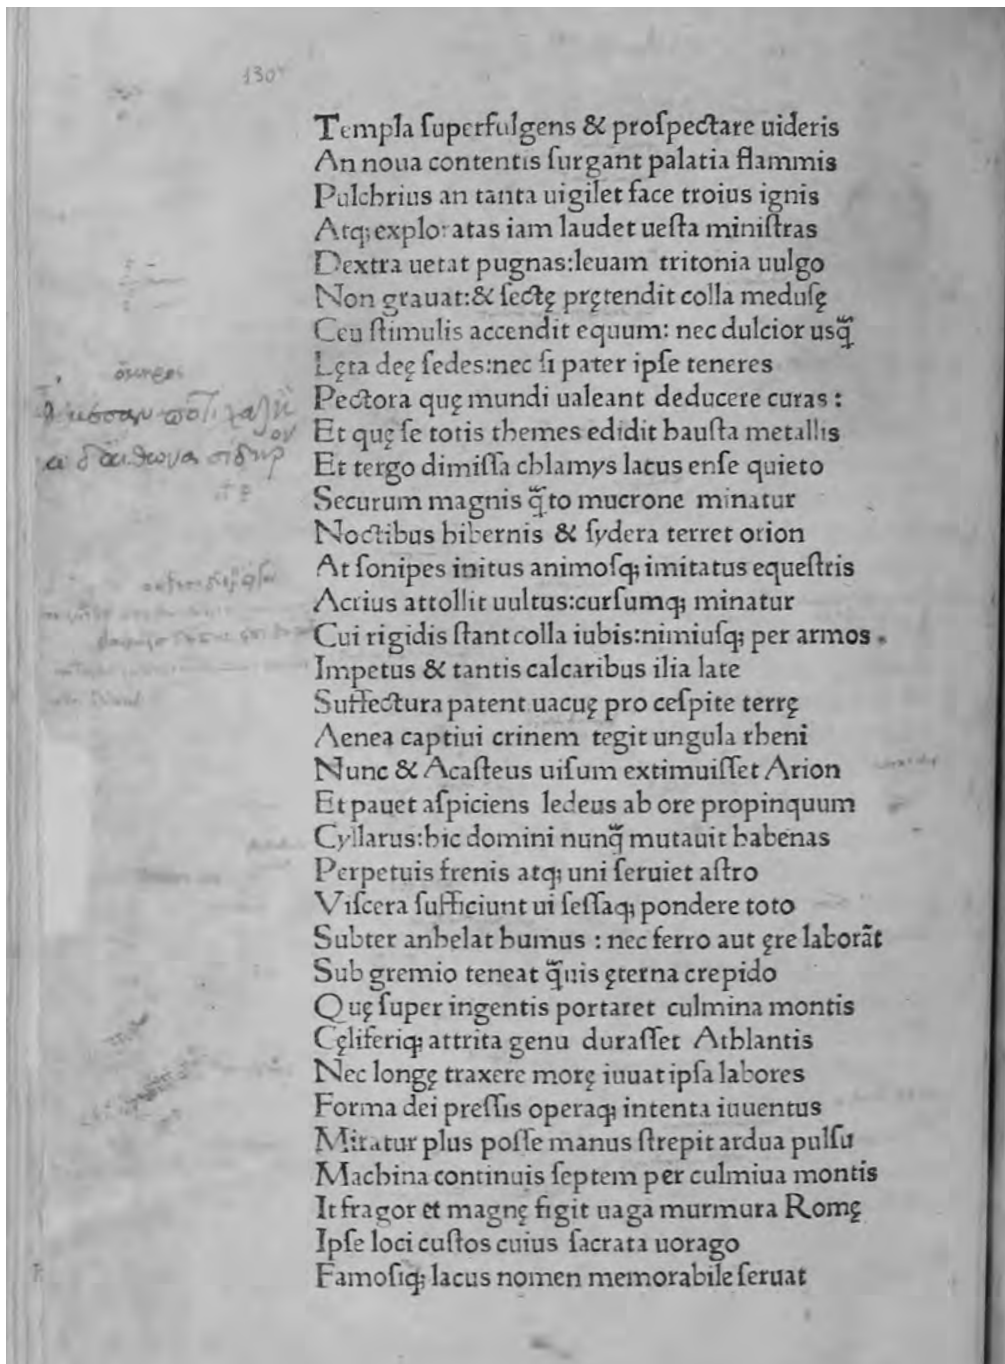 130
Templa ſuperfulgens & proſpectare uideris
An noua contentis ſurgant palatia flammis
Pulchrius an tanta uigilet face troius ignis
Atq; exploratas iam laudet ueſta miniſtras
Dextra uetat pugnas:leuam tritonia uulgo
Non grauat:& ſectę prętendit colla meduſę
Ceu ſtimulis accendit equum: nec dulcior usq̃
Lęta deę ſedes:nec ſi pater ipſe teneres
Pectora quę mundi ualeant deducere curas :
Et quę ſe totis themes edidit hauſta metallis
Et tergo dimiſſa chlamys latus enſe quieto
Securum magnis q̃to mucrone minatur
Noctibus hibernis & ſydera terret orion
At ſonipes initus animoſq; imitatus equeſtris
Acrius attollit uultus:curſumq; minatur
Cui rigidis ſtant colla iubis:nimiuſq; per armos .
Impetus & tantis calcaribus ilia late
Suffectura patent uacuę pro ceſpite terrę
Aenea captiui crinem tegit ungula rheni
Nunc & Acaſteus uiſum extimuiſſet Arion
Et pauet aſpiciens ledeus ab ore propinquum
Cyllarus:hic domini nunq̃ mutauit habenas
Perpetuis frenis atq; uni ſeruiet aſtro
Viſcera ſufficiunt ui ſeſſaq; pondere toto
Subter anhelat humus : nec ferro aut ęre laborãt
Sub gremio teneat q̃uis ęterna crepido
Quę ſuper ingentis portaret culmina montis
Cęliferiq; attrita genu duraſſet Athlantis
Nec longę traxere morę iuuat ipſa labores
Forma dei preſſis operaq; intenta iuuentus
Miratur plus poſſe manus ſtrepit ardua pulſu
Machina continuis ſeptem per culmiua montis
It fragor et magnę figit uaga murmura Romę
Ipſe loci cuſtos cuius ſacrata uorago
Famoſiq; lacus nomen memorabile ſeruat